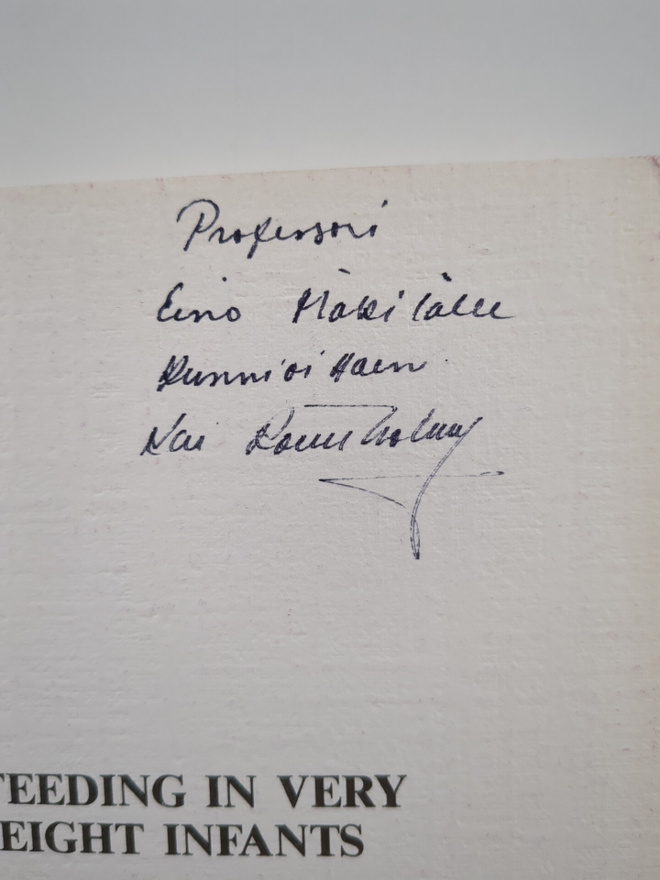 Professori
Eino Mäkilälle
Kunnioittaen
Kai Rönnholm
FEEDING IN VERY
EIGHT INFANTS